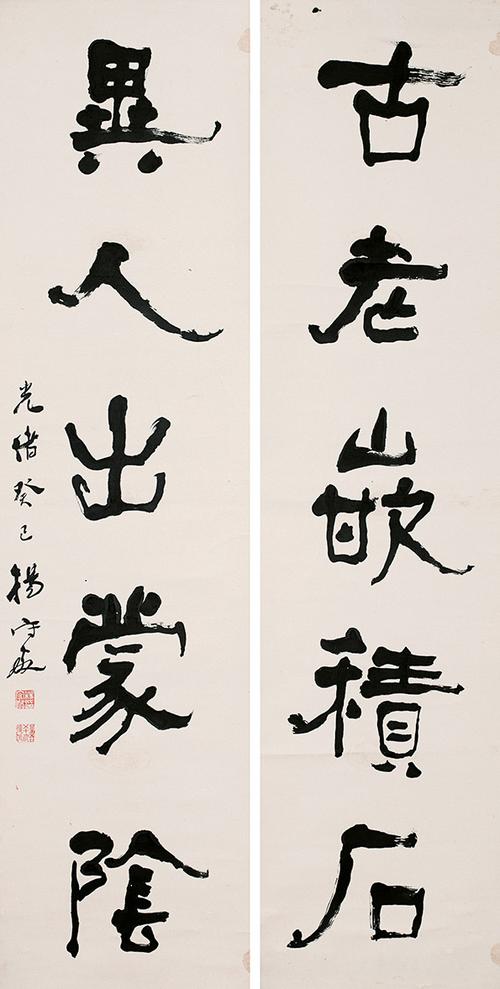 古老嵌積石
異人出蒙陰
光緒癸巳楊守敬